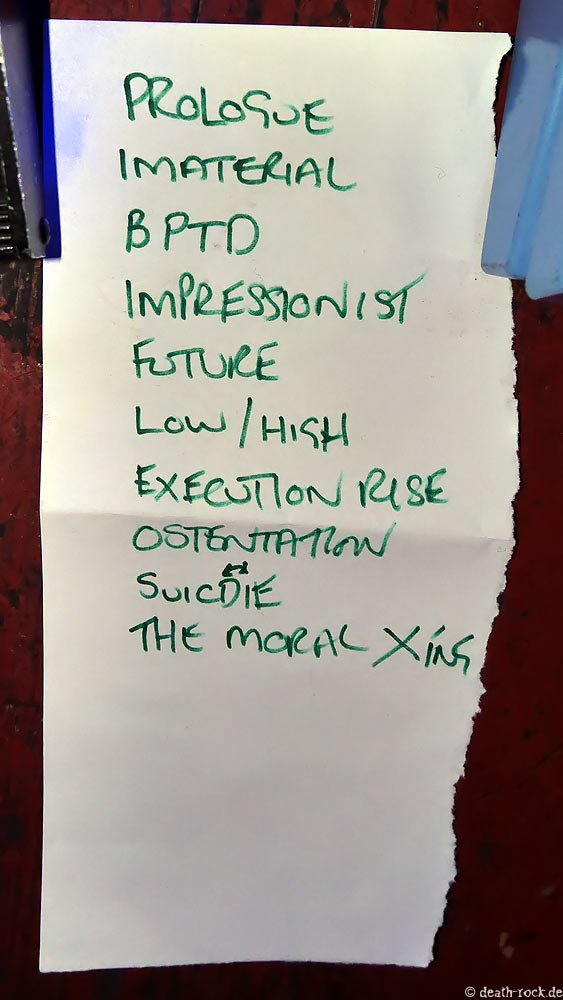 PROLOGUE
IMATERIAL
BPTD
IMPRESSIONIST
FUTURE
LOW / HIGH
EXECUTION RISE
OSTENTATION
↔
SUICDIE
THE MORAL XING
© death-rock.de